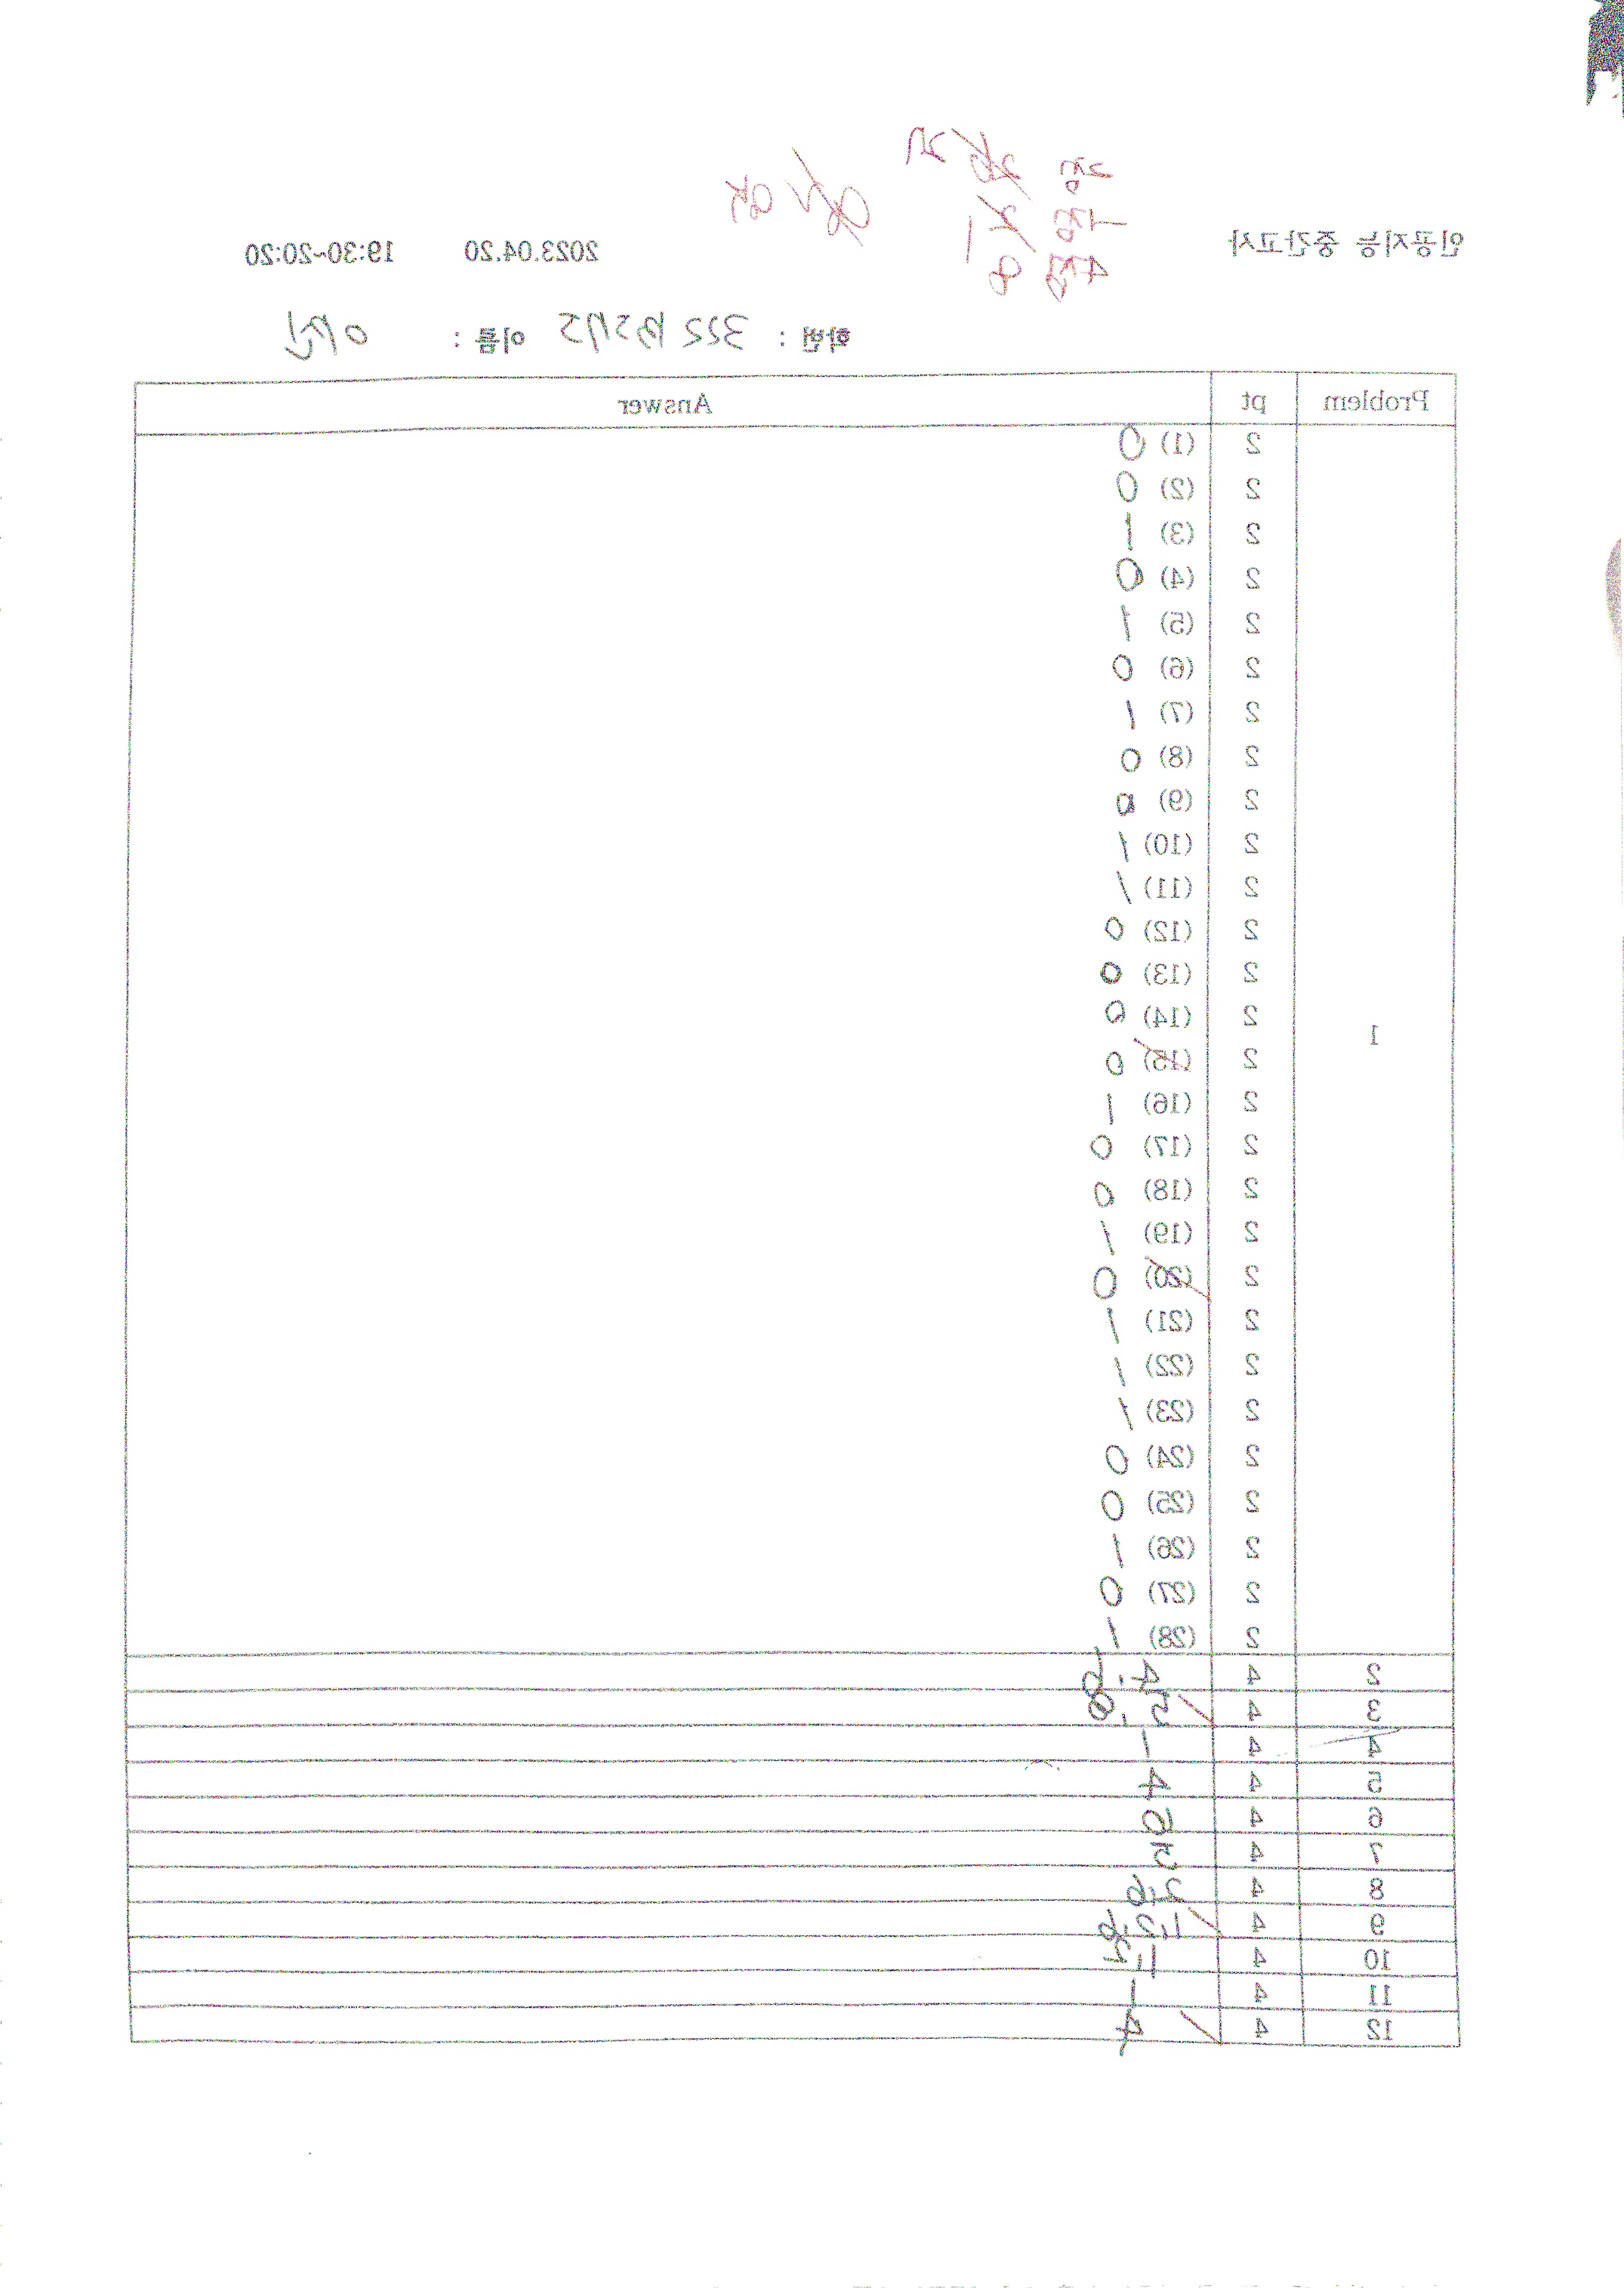 인공지능 중간고사 2023.04.20 19:30~20:20
학번 : 이름 :
Problem pt Answer
1
2 (1) 0
2 (2) 0
2 (3) 1
2 (4) 0
2 (5) 1
2 (6) 0
2 (7) 1
2 (8) 0
2 (9) 0
2 (10) 1
2 (11) 1
2 (12) 0
2 (13) 0
2 (14) 0
2 (15) 0
2 (16) 1
2 (17) 0
2 (18) 0
2 (19) 1
2 (20) 0
2 (21) 1
2 (22) 1
2 (23) 1
2 (24) 0
2 (25) 0
2 (26) 1
2 (27) 0
2 (28) 1
2 4
3 4
4 4 1
5 4 4
6 4
7 4 5
8 4
9 4
10 4
11 4 1
12 4 4